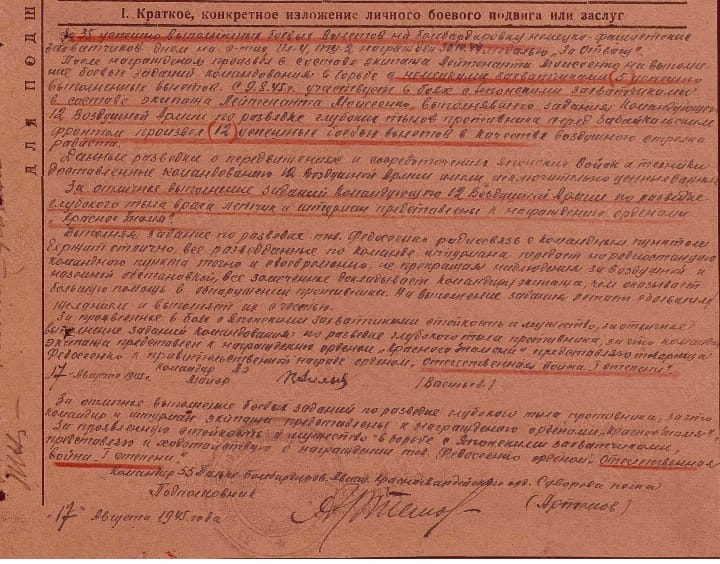 I. Краткое, конкретное изложение личного боевого подвига или заслуг
За 35 успешно выполненных боевых вылетов на бомбардировку немецко-фашистских
захватчиков днем на с-тах Ил-4, ТУ-2 награжден медалью „За Отвагу“.
После награждения произвел в составе экипажа Лейтенанта Моисеенко на выполне-
ние боевых заданий командования в борьбе с немецкими захватчиками 5 успешно
выполненных вылетов. С 9.8.45г. участвует в боях с Японскими захватчиками
в составе экипажа Лейтенанта Моисеенко, выполнявшего задания Командующего
12 Воздушной Армии по разведке глубоких тылов противника перед Забайкальским
фронтом произвел 12 успешных боевых вылетов в качестве воздушного стрелка
радиста.
Данные разведки о передвижениях и сосредоточения Японских войск и техники
доставленные командованию 12 Воздушной Армии имели исключительно ценные данные
За отличное выполнение заданий Командующего 12 Воздушной Армии по разведке
глубокого тыла врага летчик и штурман представлены к награждению орденами
„Красное Знамя“.
Выполняя задание по разведке тов. Федосеенко радиосвязь с командным пунктом
держит отлично, все разведданные по команде штурмана передает на радиостанцию
командного пункта точно и своевременно, не прекращая наблюдения за воздушной и
наземной обстановкой, все замеченное докладывает командиру экипажа, чем оказывает
большую помощь в обнаружении противника. На выполнение задания летает с большим
желанием и выполняет их с честью.
За проявленные в боях с Японскими захватчиками стойкость и мужество, за отличное
выполнение заданий командования по разведке глубокого тыла противника, за что командир
экипажа представлен к награждению орденом „Красное Знамя“ представляю товарища
Федосеенко к правительственной награде орденом, Отечественная война I степени“
Командир АЭ
17 Августа 1945г. Майор (Васильев)
За отличное выполнение боевых заданий по разведке глубокого тыла противника, за что
командир и штурман экипажа представлены к награждению орденами „Красное Знамя“
За проявленную стойкость и мужество в борьбе с Японскими захватчиками,
представляю и ходатайствую о награждении тов. Федосеенко орденом, Отечественная
война I степени“.
Командир 55 Бомбардиров. Авиац. Краснознам ... орд. Суворова полка
Подполковник (Артемов)
17 Августа 1945 года